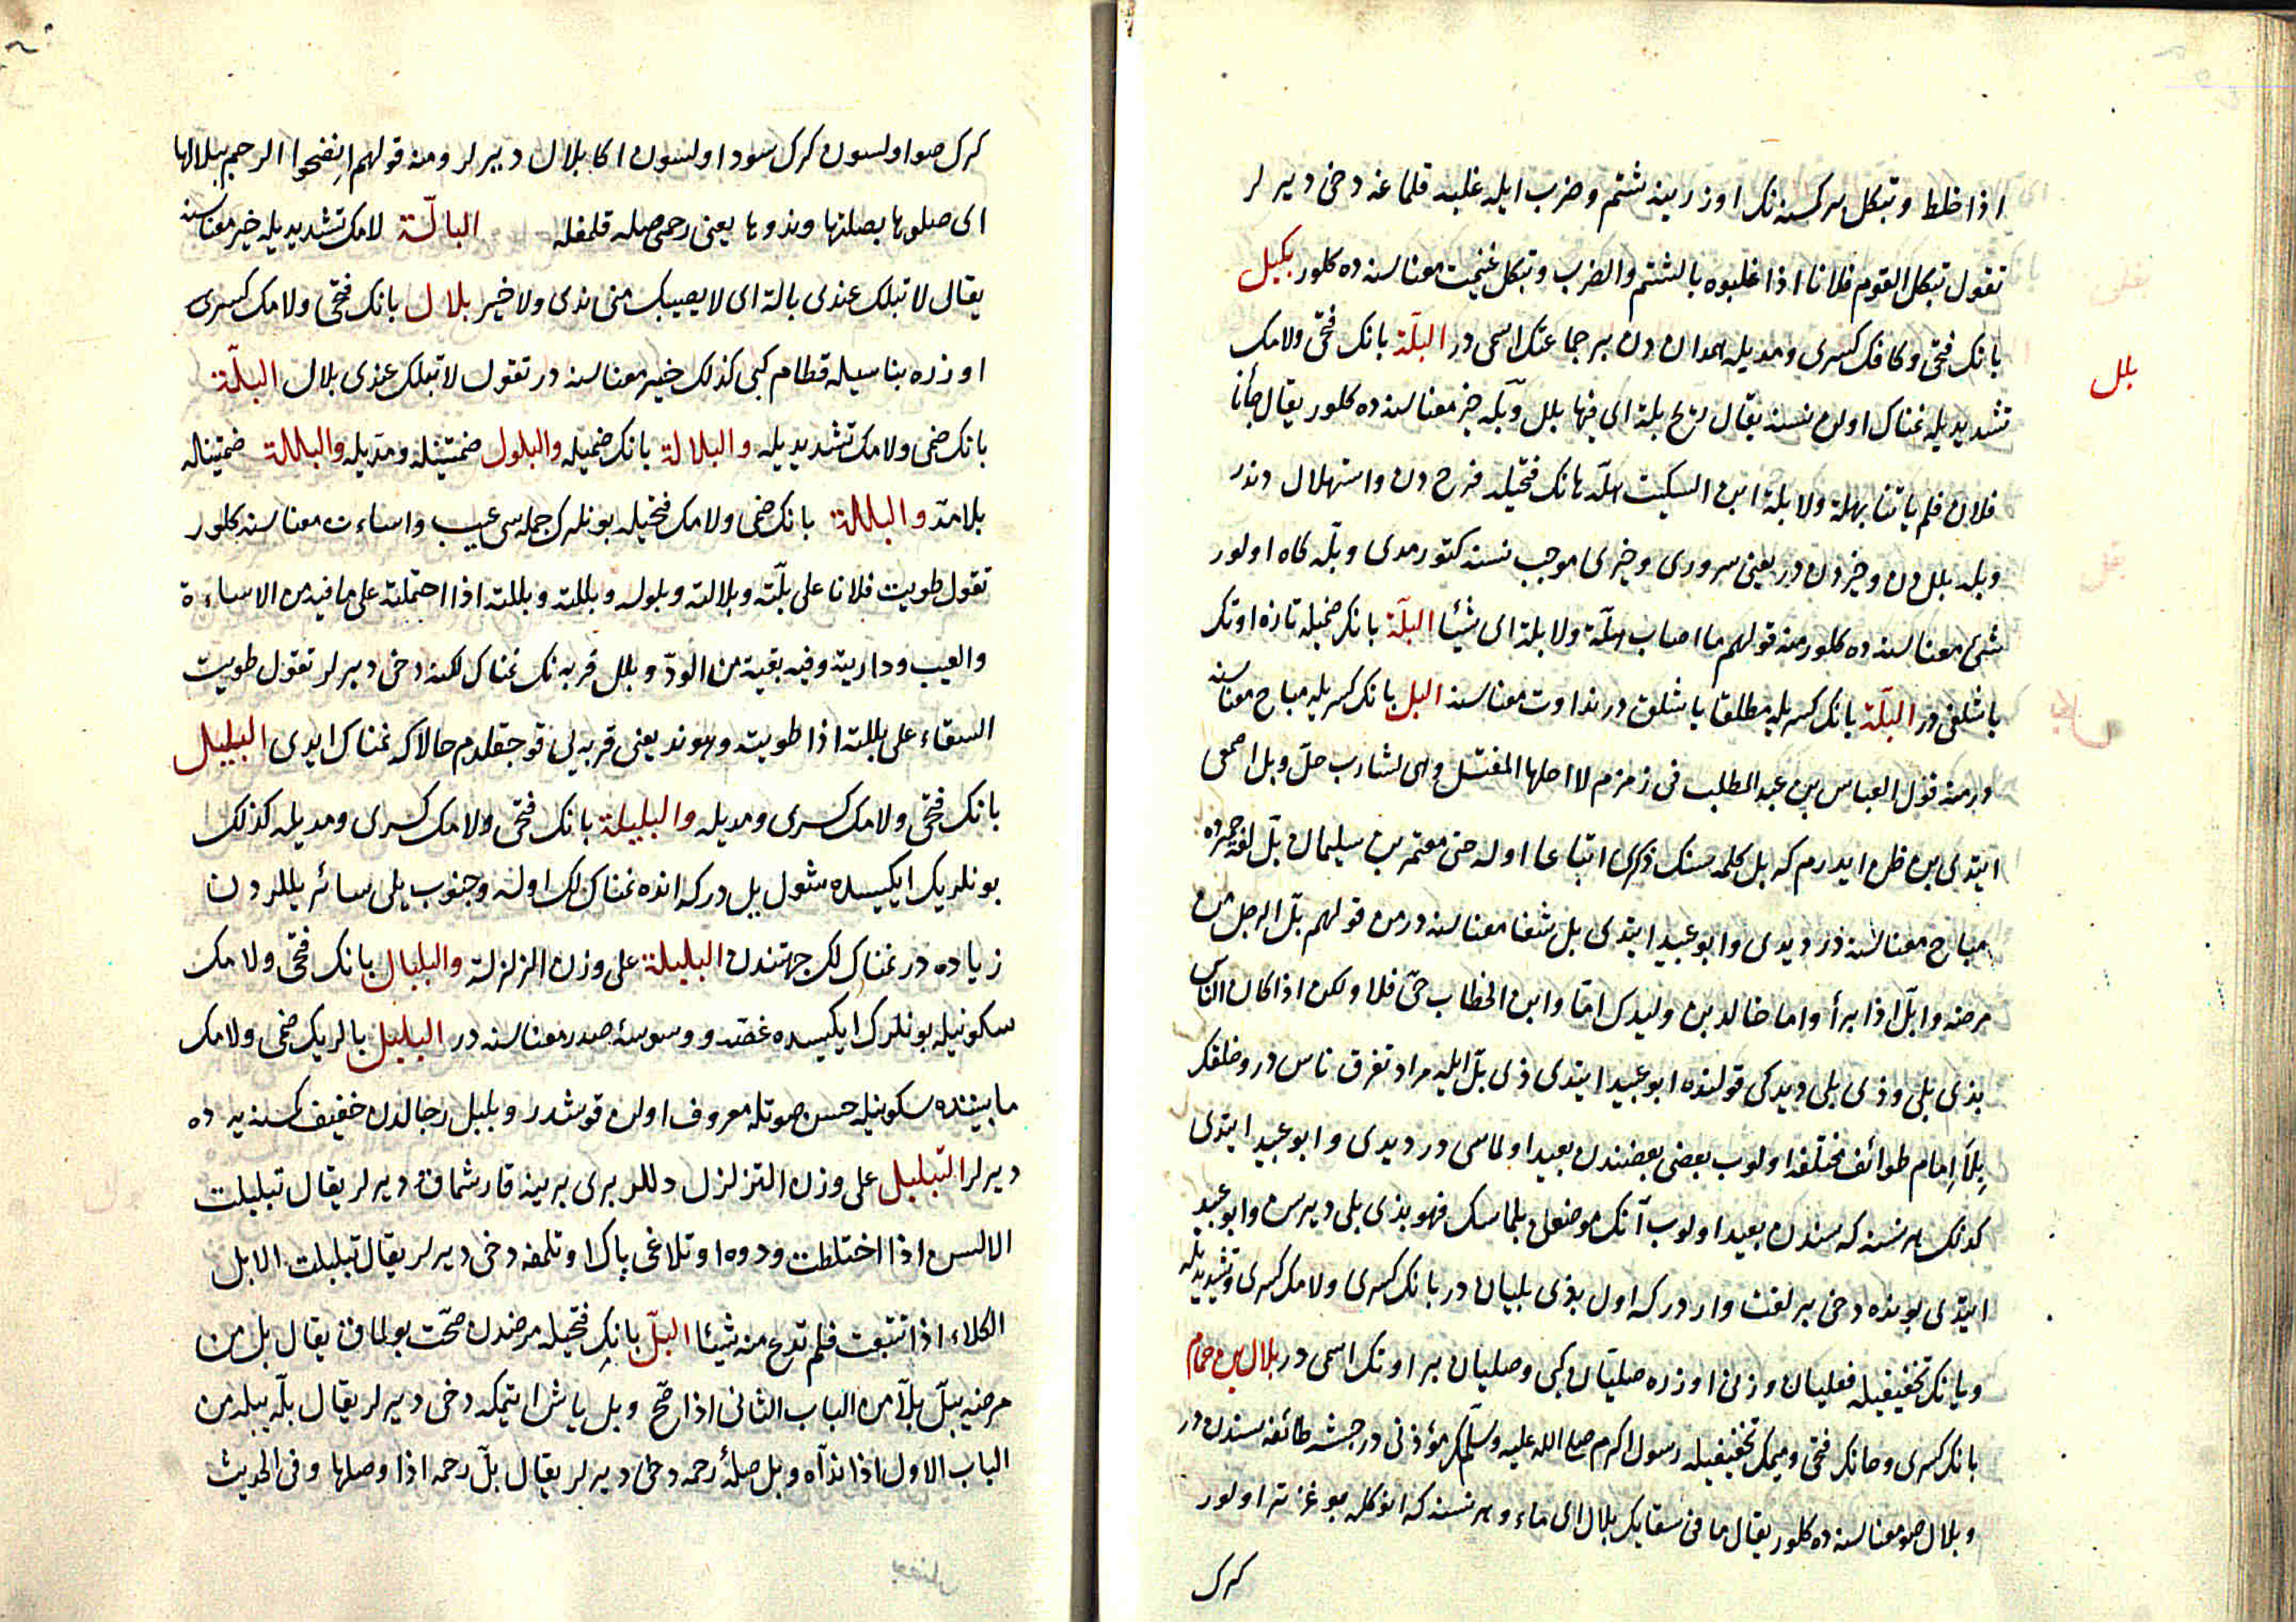 اذا خلط وتبكل بر كمسنه نك اوزرينه شتم وضرب ايله غلبه قلماغه دخى ديرلر
تقول تبكل القوم فلانا اذا غلبوه بالشتم والضرب وتبكل غنيمت معناسنه ده كلور بكيل
بانك فتحى وكافك كسرى ومديله همدان دن بر جماعتك اسمى در البلّة بانك فتحى ولامك
بلل
تشديديله نمناك اولن نسنه يقال ريح بلة اى فيها بلل وبلّه خير معناسنه ده كلور يقال جأنا
فلان فلم ياتنا بهلة ولا بلة ابن السكيت هلّه هانك فتحيله فرح دن واستهلال دندر
وبله بلل دن وخيردن در يعنى سرورى وخيرى موجب نسنه كتورمدى وبلّه كاه اولور
شئ معناسنه ده كلور منه قولهم ما اصاب هلّة ولا بلة اى شيئا البلّة بانك ضميله تازه اوتك
ياشلغى در البلّة بانك كسريله مطلقا ياشلق در نداوت معناسنه البل بانك كسريله مباح معناسنه
در ومنه قول العباس بن عبد المطلب فى زمزم لا احلها المغتسل وهى لشارب حلّ وبل اصمعى
ايتدى بن ظن ايدردم كه بل كلمه سنك ذكرى اتباعا اوله حتى معتمر بن سليمان بلّ لغة حميرده
مباح معناسنه در ديدى وابو عبيد ايتدى بل شفا معناسنه در من قولهم بلّ الرجل من
مرضه وابلّ اذا برأ واما خالد بن وليدك امّا وابن الخطاب حىّ فلا ولكن اذا كان الناس
بذى بلى وذى بلى ديدكى قولنده ابو عبيد ايتدى ذى بلّ ايله مراد تفرق ناس در وخلقك
بِلاَ اِمام طوائف مختلفه اولوب بعضى بعضندن بعيد اولماسى در ديدى وابو عبيد ايتدى
كذلك هر نسنه كه سندن بعيد اولوب آنك موضعنى بلماسك فهو بذى بلى ديرسن وابو عبيد
ايتدى بونده دخى بر لغت وار در كه اول بذى بليان در بانك كسرى ولامك كسرى وتشديديله
ويانك تخفيفيله فعليان وزنى اوزره صليان كبى وصليان بر اوتك اسمى در بلال بن حمام
بانك كسرى وحانك فتحى وميمك تخفيفيله رسول اكرم صلى الله عليه وسلمك مؤذنى در حبشه طائفه سندن در
وبلال صو معناسنه ده كلور يقال ما فى سقايك بلال اى ماء وهر نسنه كه انوكله بوغز تر اولور
كرك
كرك صو اولسون كرك سود اولسون اكا بلال ديرلر ومنه قولهم انضحوا الرحم ببلالها
اى صلوها بصلتها وندوها يعنى رحمى صله قلمغله البالّة لامك تشديديله خير معناسنه
يقال لا تبلك عندى بالة اى لا يصيبك منى ندى ولا خير بلال بانك فتحى ولامك كسرى
اوزره بناسيله قطام كبى كذلك خير معناسنه در تقول لا تبلك عندى بلال البلّة
بانك ضمى ولامك تشديديله والبلالة بانك ضميله والبلول ضمتينله ومديله والبللة ضمتينله
بلا مدّ والبللة بانك ضمى ولامك فتحيله بونلرك جمله سى عيب واساءت معناسنه كلور
تقول طويت فلانا على بلّته وبلالته وبلوله وبللته وبللته اذا احتملته على ما فيه من الاساءة
والعيب وداريته وفيه بقية من الودّ وبلل قربه نك نمناك لكنه دخى ديرلر تقول طويت
السقاء على بللته اذا طويته وهو ند يعنى قربه يى قوجقلدم حالا كه نمناك ايدى البليل
بانك فتحى ولامك كسرى ومديله والبليلة بانك فتحى ولامك كسرى ومديله كذلك
بونلريك ايكيسده شول يل در كه انده نمناك لك اوله وجنوب يلى سائر يللردن
زياده در نمناك لك جهتندن البلبلة على وزن الزلزلة والبلبال بانك فتحى ولامك
سكونيله بونلرك ايكيسده غصه ووسوسهٔ صدر معناسنه در البلبل بالريك ضمى ولامك
مابيننده سكونيله حسن صوتله معروف اولن قوشدر وبلبل رجالدن خفيف كمسنه يه ده
ديرلر التبلبل على وزن التزلزل دللر برى برينه قارشماق ديرلر يقال تبلبلت
الالسن اذا اختلطت ودوه اوتلاغى پاك اوتلمغه دخى ديرلر يقال تبلبلت الابل
الكلاء اذا تتبعت فلم تدع منه شيئا البلّ بانك فتحيله مرضدن صحّت بولماق يقال بل من
مرضه يبلّ بلّا من الباب الثانى اذا صحّ وبل ياش ايتمكه دخى ديرلر يقال بلّه يبله من
الباب الاول اذا ندّاه وبل صلهٔ رحمه دخى ديرلر يقال بلّ رحمه اذا وصلها وفى الحديث